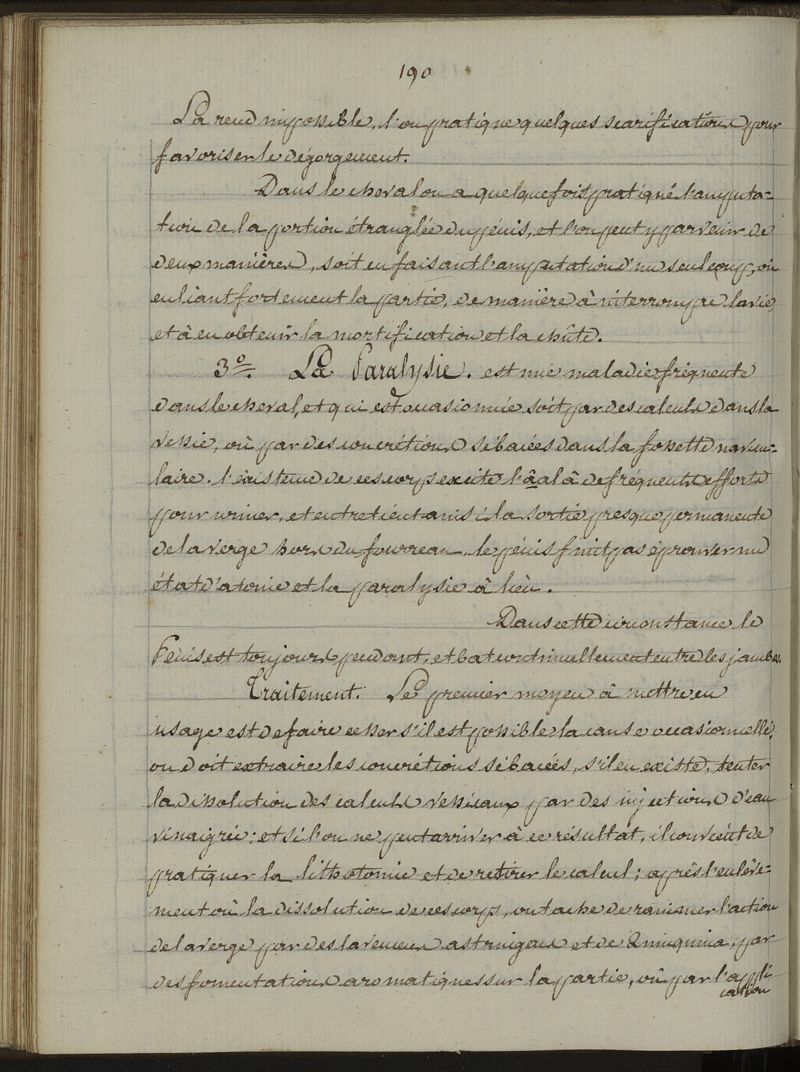 190
La rend impossible, l'on pratique quelques scarifications pour
favoriser le dégorgement.
Dans le cheval on a quelquefois pratiqué l'amputa=
tion de la portion étranglée du pénis, et l'on peut y parvenir de
deux manières, soit en faisant l'amputation d'un seul coup, ou
en liant fortement la partie, de manière à interrompre la vie,
et à en obtenir la mortification et la chûte.
3º. La Paralysie. est une maladie fréquente
dans le cheval, et qui est occasionnée soit par des calculs dans la
vessie, où par des concrétions sébacées dans la fossette navicu=
laire. l'existence de ces corps excite l'âal à de fréquents efforts
pour uriner, et entretient ainsi la sortie presque permanente
de la verge hors du fourreau, le pénis finit par éprouver un
état d'atonie et la paralysie à lieu.
Dans cette circonstance le
Penis est toujours pendant, et bat continuellement entre les jambes.
Traitement. Le premier moyen à mettre en
usage est de faire cesser s'il est possible la cause occasionnelle,
on doit extraire les concrétions sébacées, s'il en existe, tenter
la dissolution des calculs vésicaux par des injections d'eau
vinaigrée; et si l'on ne peut arriver à ce résultat, il convient de
pratiquer la lithotomie et de retirer le calcul; après l'enlève=
ment où la dissolution de ces corps, on tache de ranimer l'action
de la verge par des lavements astringens et de Quinquina, par
des fomentations aromatiques sur la partie, où par l'appli
cation